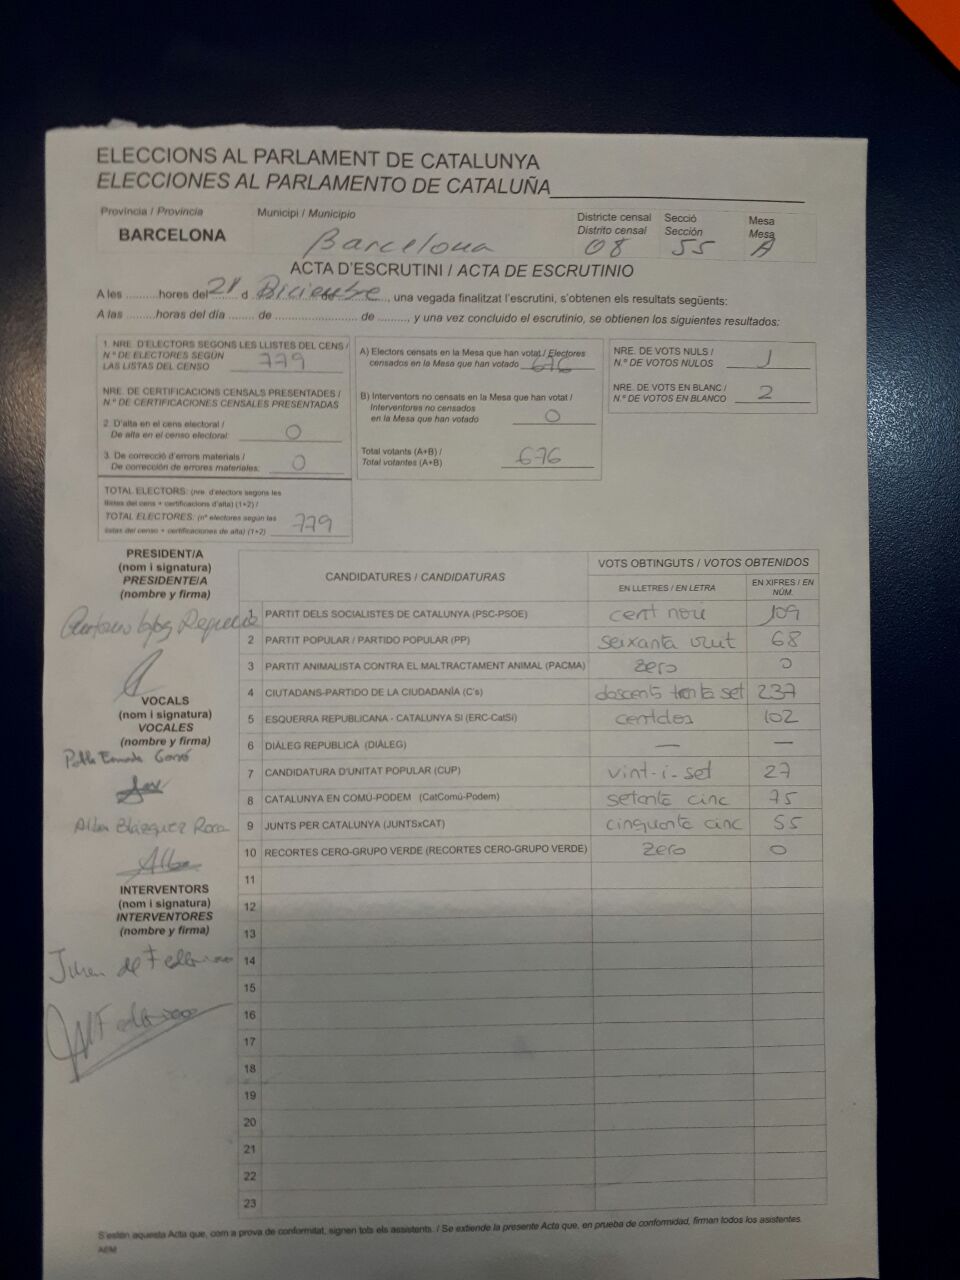 ELECCIONS AL PARLAMENT DE CATALUNYA
ELECCIONES AL PARLAMENTO DE CATALUÑA
Provincia / Provincia Municipi / Municipio Districte censal Secció Mesa
Distrito censal Sección Mesa
BARCELONA Barcelona 08 55 A
ACTA D'ESCRUTINI / ACTA DE ESCRUTINIO
A les ..........hores del 21 d Diciembre, una vegada finalitzat l'escrutini, s'obtenen els resultats següents:
A las ..........horas del día ........ de ................................ de ........., y una vez concluido el escrutinio, se obtienen los siguientes resultados:
1. NRE. D'ELECTORS SEGONS LES LLISTES DEL CENS /
N.º DE ELECTORES SEGÚN
LAS LISTAS DEL CENSO 779
NRE. DE CERTIFICACIONS CENSALS PRESENTADES /
N.º DE CERTIFICACIONES CENSALES PRESENTADAS
2. D'alta en el cens electoral /
De alta en el censo electoral: 0
3. De correcció d'errors materials /
De corrección de errores materiales: 0
TOTAL ELECTORS: (nre. d'electors segons les
llistes del cens + certificacions d'alta) (1+2) /
TOTAL ELECTORES: (nº electores según las
listas del censo + certificaciones de alta) (1+2) 779
A) Electors censats en la Mesa que han votat / Electores
censados en la Mesa que han votado 676
B) Interventors no censats en la Mesa que han votat /
Interventores no censados
en la Mesa que han votado 0
Total votants (A+B) /
Total votantes (A+B) 676
NRE. DE VOTS NULS /
N.º DE VOTOS NULOS 1
NRE. DE VOTS EN BLANC /
N.º DE VOTOS EN BLANCO 2
PRESIDENT/A
(nom i signatura)
PRESIDENTE/A
(nombre y firma)
VOCALS
(nom i signatura)
VOCALES
(nombre y firma)
Alba Blázquez
INTERVENTORS
(nom i signatura)
INTERVENTORES
(nombre y firma)
CANDIDATURES / CANDIDATURAS VOTS OBTINGUTS / VOTOS OBTENIDOS
EN LLETRES / EN LETRA EN XIFRES / EN NÚM.
1 PARTIT DELS SOCIALISTES DE CATALUNYA (PSC-PSOE) cent nou 109
2 PARTIT POPULAR / PARTIDO POPULAR (PP) seixanta vuit 68
3 PARTIT ANIMALISTA CONTRA EL MALTRACTAMENT ANIMAL (PACMA) zero 0
4 CIUTADANS-PARTIDO DE LA CIUDADANÍA (C's) doscents trenta set 237
5 ESQUERRA REPUBLICANA - CATALUNYA SI (ERC-CatSí) centdos 102
6 DIÀLEG REPUBLICÀ (DIÀLEG) — —
7 CANDIDATURA D'UNITAT POPULAR (CUP) vint-i-set 27
8 CATALUNYA EN COMÚ-PODEM (CatComú-Podem) setanta cinc 75
9 JUNTS PER CATALUNYA (JUNTSxCAT) cinquanta cinc 55
10 RECORTES CERO-GRUPO VERDE (RECORTES CERO-GRUPO VERDE) zero 0
11
12
13
14
15
16
17
18
19
20
21
22
23
S'estén aquesta Acta que, com a prova de conformitat, signen tots els assistents. / Se extiende la presente Acta que, en prueba de conformidad, firman todos los asistentes.